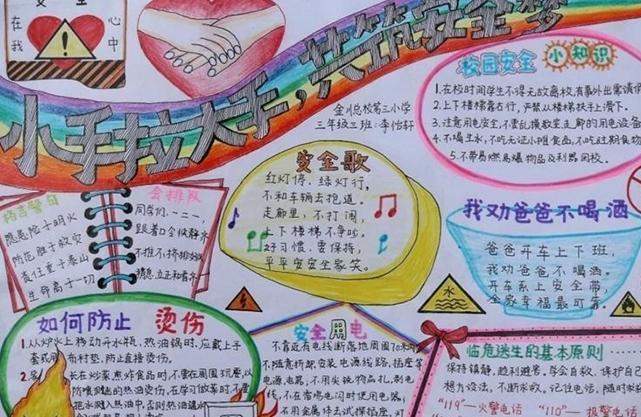 安 全
在 心
我 中
小手拉大手,共筑安全梦
金川总校第三小学
三年级三班:李怡轩
校园安全 小知识
1.在校时间学生不得无故离校,有事外出需请假
2.上下楼梯靠右行,严禁从楼梯扶手上滑下。
3.注意用电安全,不要乱摸教室走廊的用电设备
4.不喝生水,不吃无证小摊食品,不吃过期食
5.不带易燃易爆物品及利器入校。
安全歌
红灯停,绿灯行,
不和车辆去抢道。
走廊里,不打闹,
上下楼梯不争吵。
好习惯,要保持,
平平安安全家笑。
会排队
同学们,一二一,
排着口令快静齐
不推不挤排好队
隐患险于明火
防范胜于救灾
责任重于泰山
生命高于一切
我劝爸爸不喝酒
爸爸开车上下班,
我劝爸爸不喝酒。
开车系上安全带,
全家幸福最可靠。
如何防止 烫伤
1.从炉火上移动开水瓶、热油锅时,应戴上手
套或用布衬垫,防止直接烫伤。
安全用电
临危逃生的基本原则
保持镇静,趋利避害,学会自救,保护自己
想方设法,不断求救,记住电话,随时求
"119"—火警电话 "110"—报警电